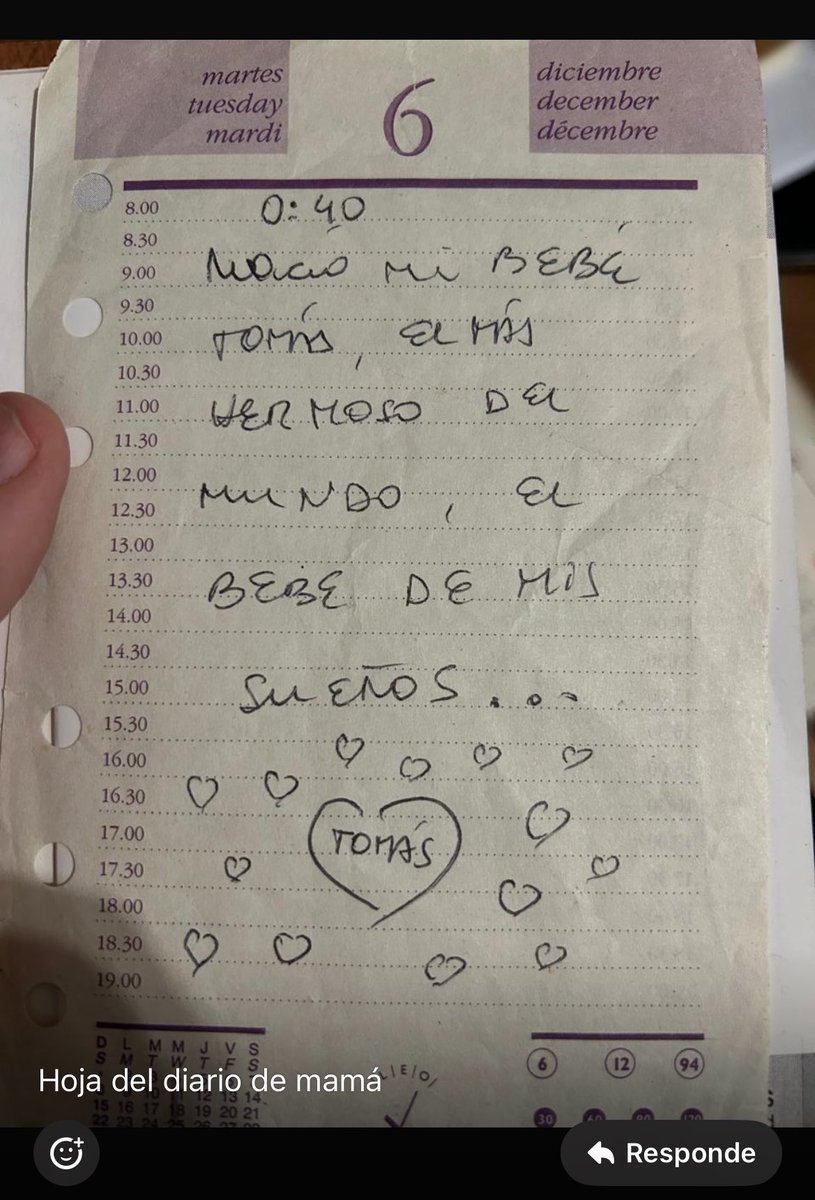 martes
tuesday
mardi
6
diciembre
december
décembre
8.00 0:40
8.30
9.00 NACIÓ MI BEBÉ
9.30
10.00 TOMÁS, EL MÁS
10.30
11.00 HERMOSO DEL
11.30
12.00 MUNDO, EL
12.30
13.00
13.30 BEBE DE MIS
14.00
14.30
15.00 SUEÑOS...
15.30
16.00
16.30
17.00 TOMÁS
17.30
18.00
18.30
19.00
D L M M J V S
S M T W T F S
6 12 94
Hoja del diario de mamá
15 16 17 18 19 20 21
30 60 90
Responde